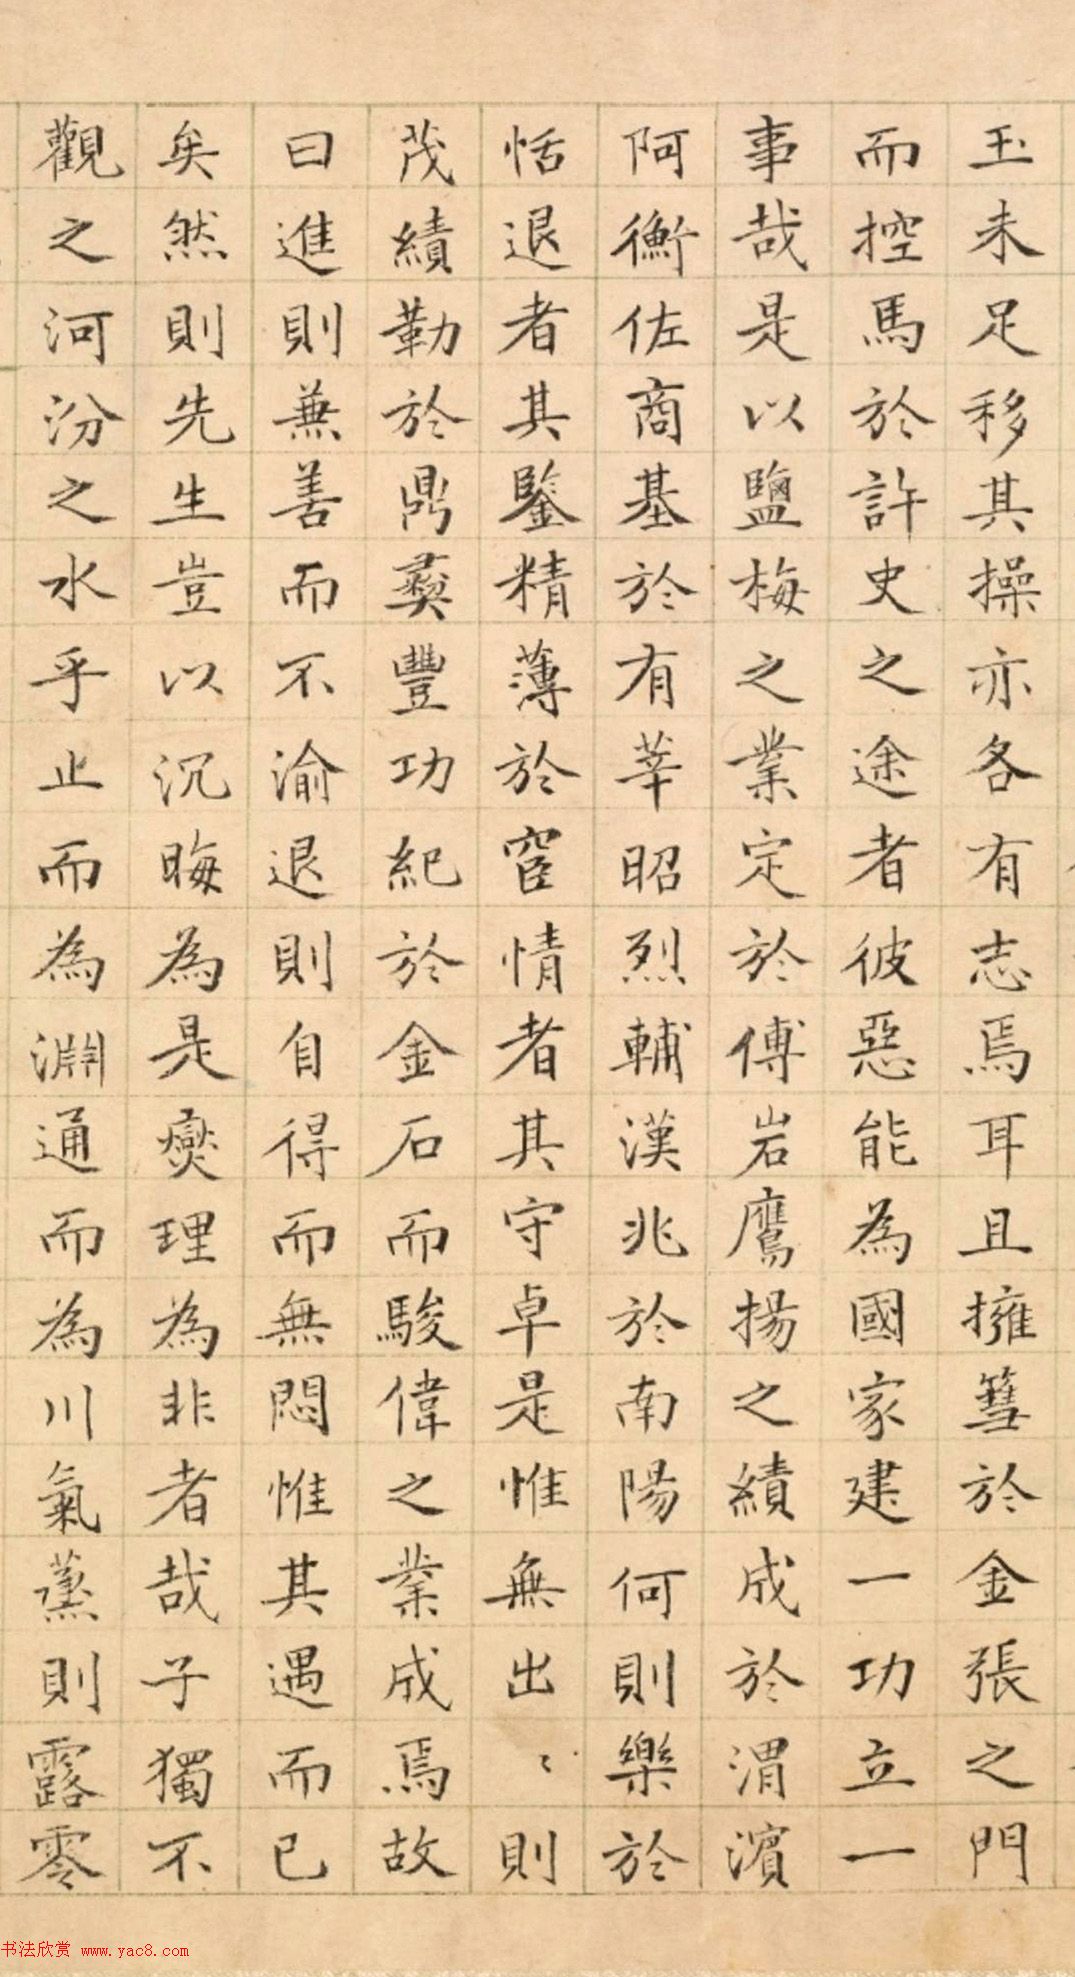 玉未足移其操亦各有志焉耳且擁篲於金張之門
而控馬於許史之途者彼惡能為國家建一功立一
事哉是以鹽梅之業定於傅岩鷹揚之績成於渭濱
阿衡佐商基於有莘昭烈輔漢兆於南陽何則樂於
恬退者其鑒精薄於宦情者其守卓是惟無出〻則
茂績勒於鼎彞豐功紀於金石而駿偉之業成焉故
曰進則兼善而不渝退則自得而無悶惟其遇而已
矣然則先生豈以沉晦為是爕理為非者哉子獨不
觀之河汾之水乎止而為淵通而為川氣蒸則露零
书法欣赏 www.yac8.com